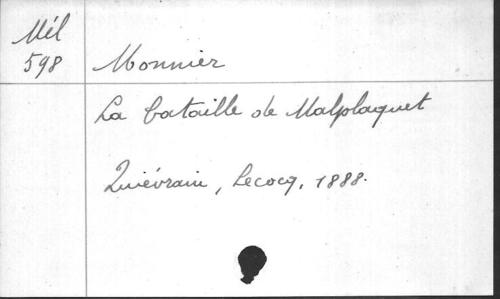 Mél
598
Monnier
La bataille de Malplaquet
Quiévrain, Lecocq, 1888.